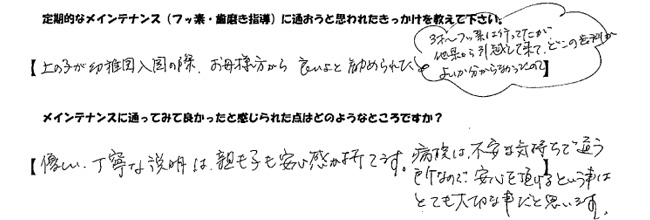 定期的なメインテナンス（フッ素・歯磨き指導）に通おうと思われたきっかけを教えて下さい。
【上の子が幼稚園入園の際、お母様方から良いよと勧められて。】
3才〜フッ素は行ってたが
他県から引越して来て、どこの歯科が
よいか分からなかったので
メインテナンスに通ってみて良かったと感じられた点はどのようなところですか？
【優しい、丁寧な説明は、親も子も安心感が持てます。病院は、不安な気持ちで通う
所なので、安心を頂けるという事は
とても大切な事だと思います。】